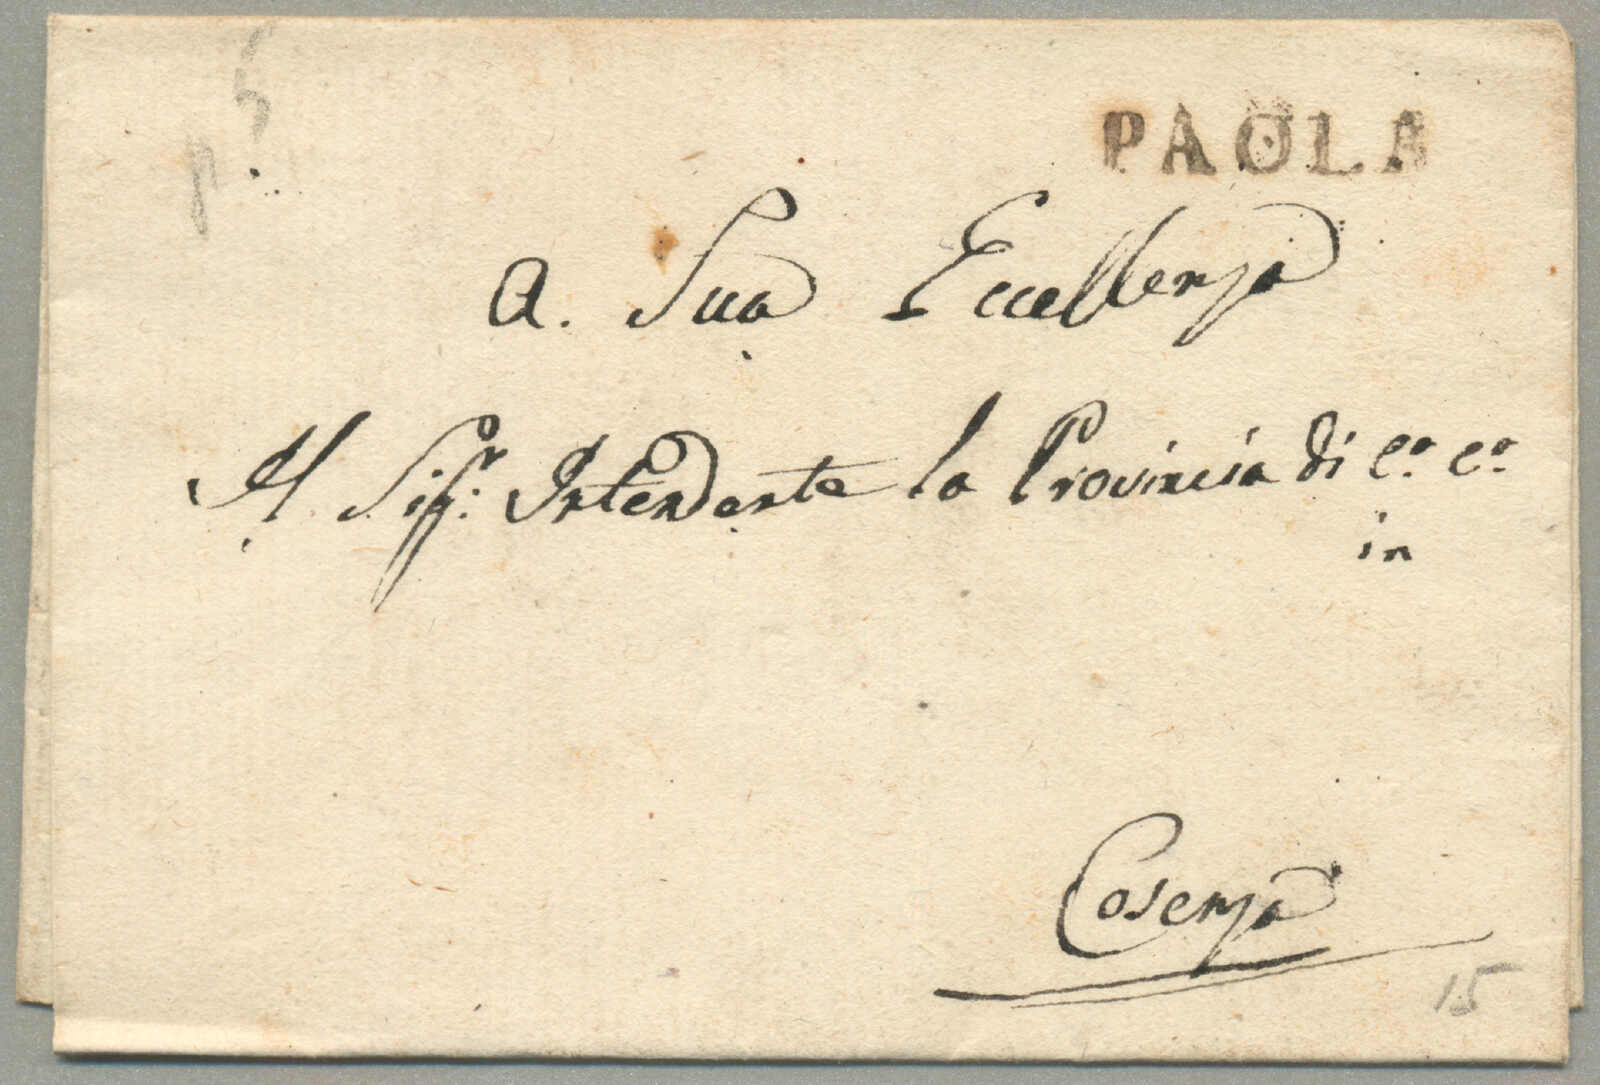 p. 5
PAOLA
A. Sua Eccellenza
Al Sigr: Intendente la Provincia di Ca. Ca.
in
Cosenza
15